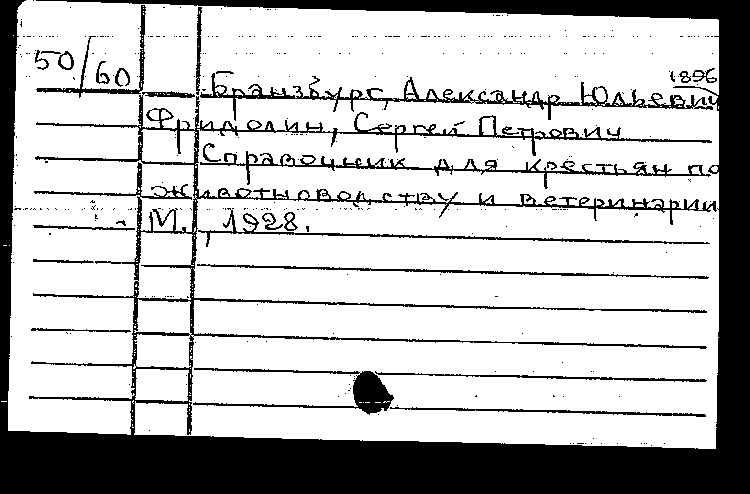 50/60
1896
Бранзбург, Александр Юльевич
Фридолин, Сергей Петрович
Справочник для крестьян по
животноводству и ветеринарии
- М., 1928.